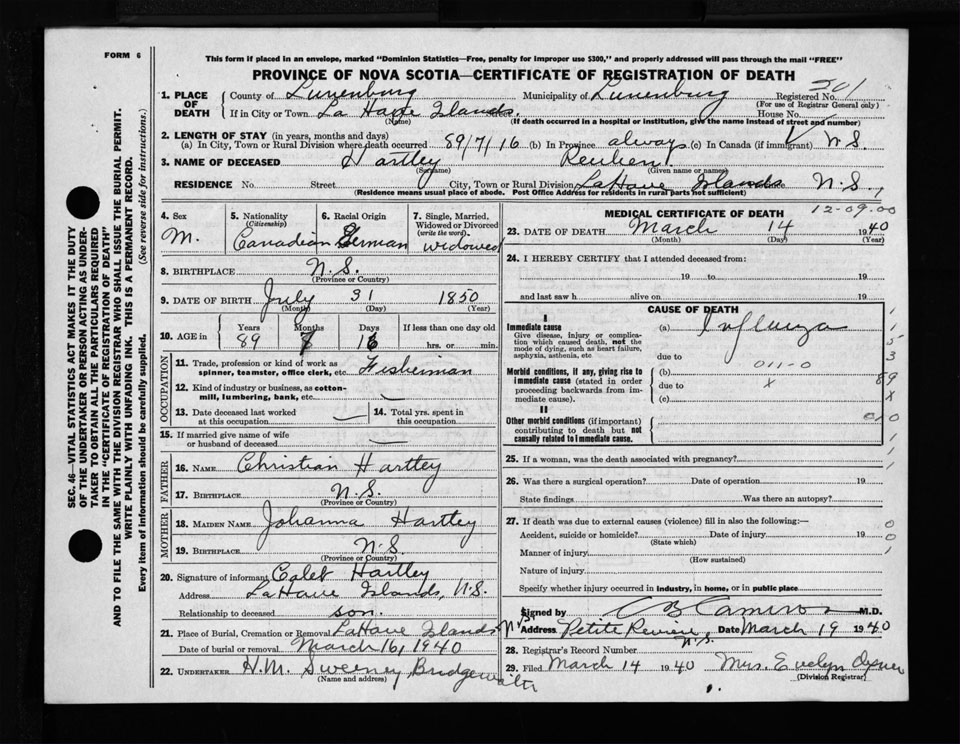 FORM 6
This form if placed in an envelope, marked "Dominion Statistics—Free, penalty for improper use $300," and properly addressed will pass through the mail "FREE"
PROVINCE OF NOVA SCOTIA—CERTIFICATE OF REGISTRATION OF DEATH
SEC. 46—VITAL STATISTICS ACT MAKES IT THE DUTY
OF THE UNDERTAKER OR PERSON ACTING AS UNDER-
TAKER TO OBTAIN ALL THE PARTICULARS REQUIRED
IN THE "CERTIFICATE OF REGISTRATION OF DEATH"
AND TO FILE THE SAME WITH THE DIVISION REGISTRAR WHO SHALL ISSUE THE BURIAL PERMIT.
WRITE PLAINLY WITH UNFADING INK. THIS IS A PERMANENT RECORD.
Every item of information should be carefully supplied. (See reverse side for instructions.)
1. PLACE OF DEATH County of Lunenburg Municipality of Lunenburg Registered No. 201
(For use of Registrar General only)
If in City or Town La Have Islands. House No.
(Name) (If death occurred in a hospital or institution, give the name instead of street and number)
2. LENGTH OF STAY (in years, months and days)
(a) In City, Town or Rural Division where death occurred 89/7/16 (b) In Province always (c) In Canada (if immigrant) N.S.
3. NAME OF DECEASED Hartley Reuben
(Surname) (Given name or names)
RESIDENCE No. Street City, Town or Rural Division LaHave Islands N.S.,
(Residence means usual place of abode. Post Office Address for residents in rural parts not sufficient)
4. Sex
M.
5. Nationality
(Citizenship)
Canadian
6. Racial Origin
German
7. Single, Married, Widowed or Divorced
(write the word)
widowed
8. BIRTHPLACE N.S.
(Province or Country)
9. DATE OF BIRTH July 31 1850
(Month) (Day) (Year)
10. AGE in Years Months Days If less than one day old
89 7 16 hrs. or min.
OCCUPATION
11. Trade, profession or kind of work as
spinner, teamster, office clerk, etc. Fisherman
12. Kind of industry or business, as cotton-
mill, lumbering, bank, etc.
13. Date deceased last worked
at this occupation
14. Total yrs. spent in
this occupation
15. If married give name of wife
or husband of deceased
FATHER
16. NAME Christian Hartley
17. BIRTHPLACE N.S.
(Province or Country)
MOTHER
18. MAIDEN NAME Johanna Hartley
19. BIRTHPLACE N.S.
(Province or Country)
20. Signature of informant Caleb Hartley
Address LaHave Islands, N.S.
Relationship to deceased son.
21. Place of Burial, Cremation or Removal LaHave Islands N.S.
Date of burial or removal March 16, 1940
22. UNDERTAKER H.M. Sweeney Bridgewater
(Name and address)
MEDICAL CERTIFICATE OF DEATH
12-09.00
23. DATE OF DEATH March 14 1940
(Month) (Day) (Year)
24. I HEREBY CERTIFY that I attended deceased from:
19 to 19
and last saw h alive on 19
CAUSE OF DEATH
I
Immediate cause
Give disease, injury or complica-
tion which caused death, not the
mode of dying, such as heart failure,
asphyxia, asthenia, etc
(a) Influenza
due to
Morbid conditions, if any, giving rise to
immediate cause (stated in order
proceeding backwards from im-
mediate cause).
(b) 011-0
due to x
(c)
II
Other morbid conditions (if important)
contributing to death but not
causally related to immediate cause.
1
1
5
3
89
X
0/0
1
1
25. If a woman, was the death associated with pregnancy?
26. Was there a surgical operation? Date of operation 19
State findings Was there an autopsy?
27. If death was due to external causes (violence) fill in also the following:—
Accident, suicide or homicide? Date of injury 19
(State which)
Manner of injury
(How sustained)
Nature of injury
Specify whether injury occurred in industry, in home, or in public place
0
0
1
Signed by Cameron M.D.
Address Petite Riviere N.S. Date March 19 1940
28. Registrar's Record Number
29. Filed March 14 1940 Mrs. Evelyn
(Division Registrar)